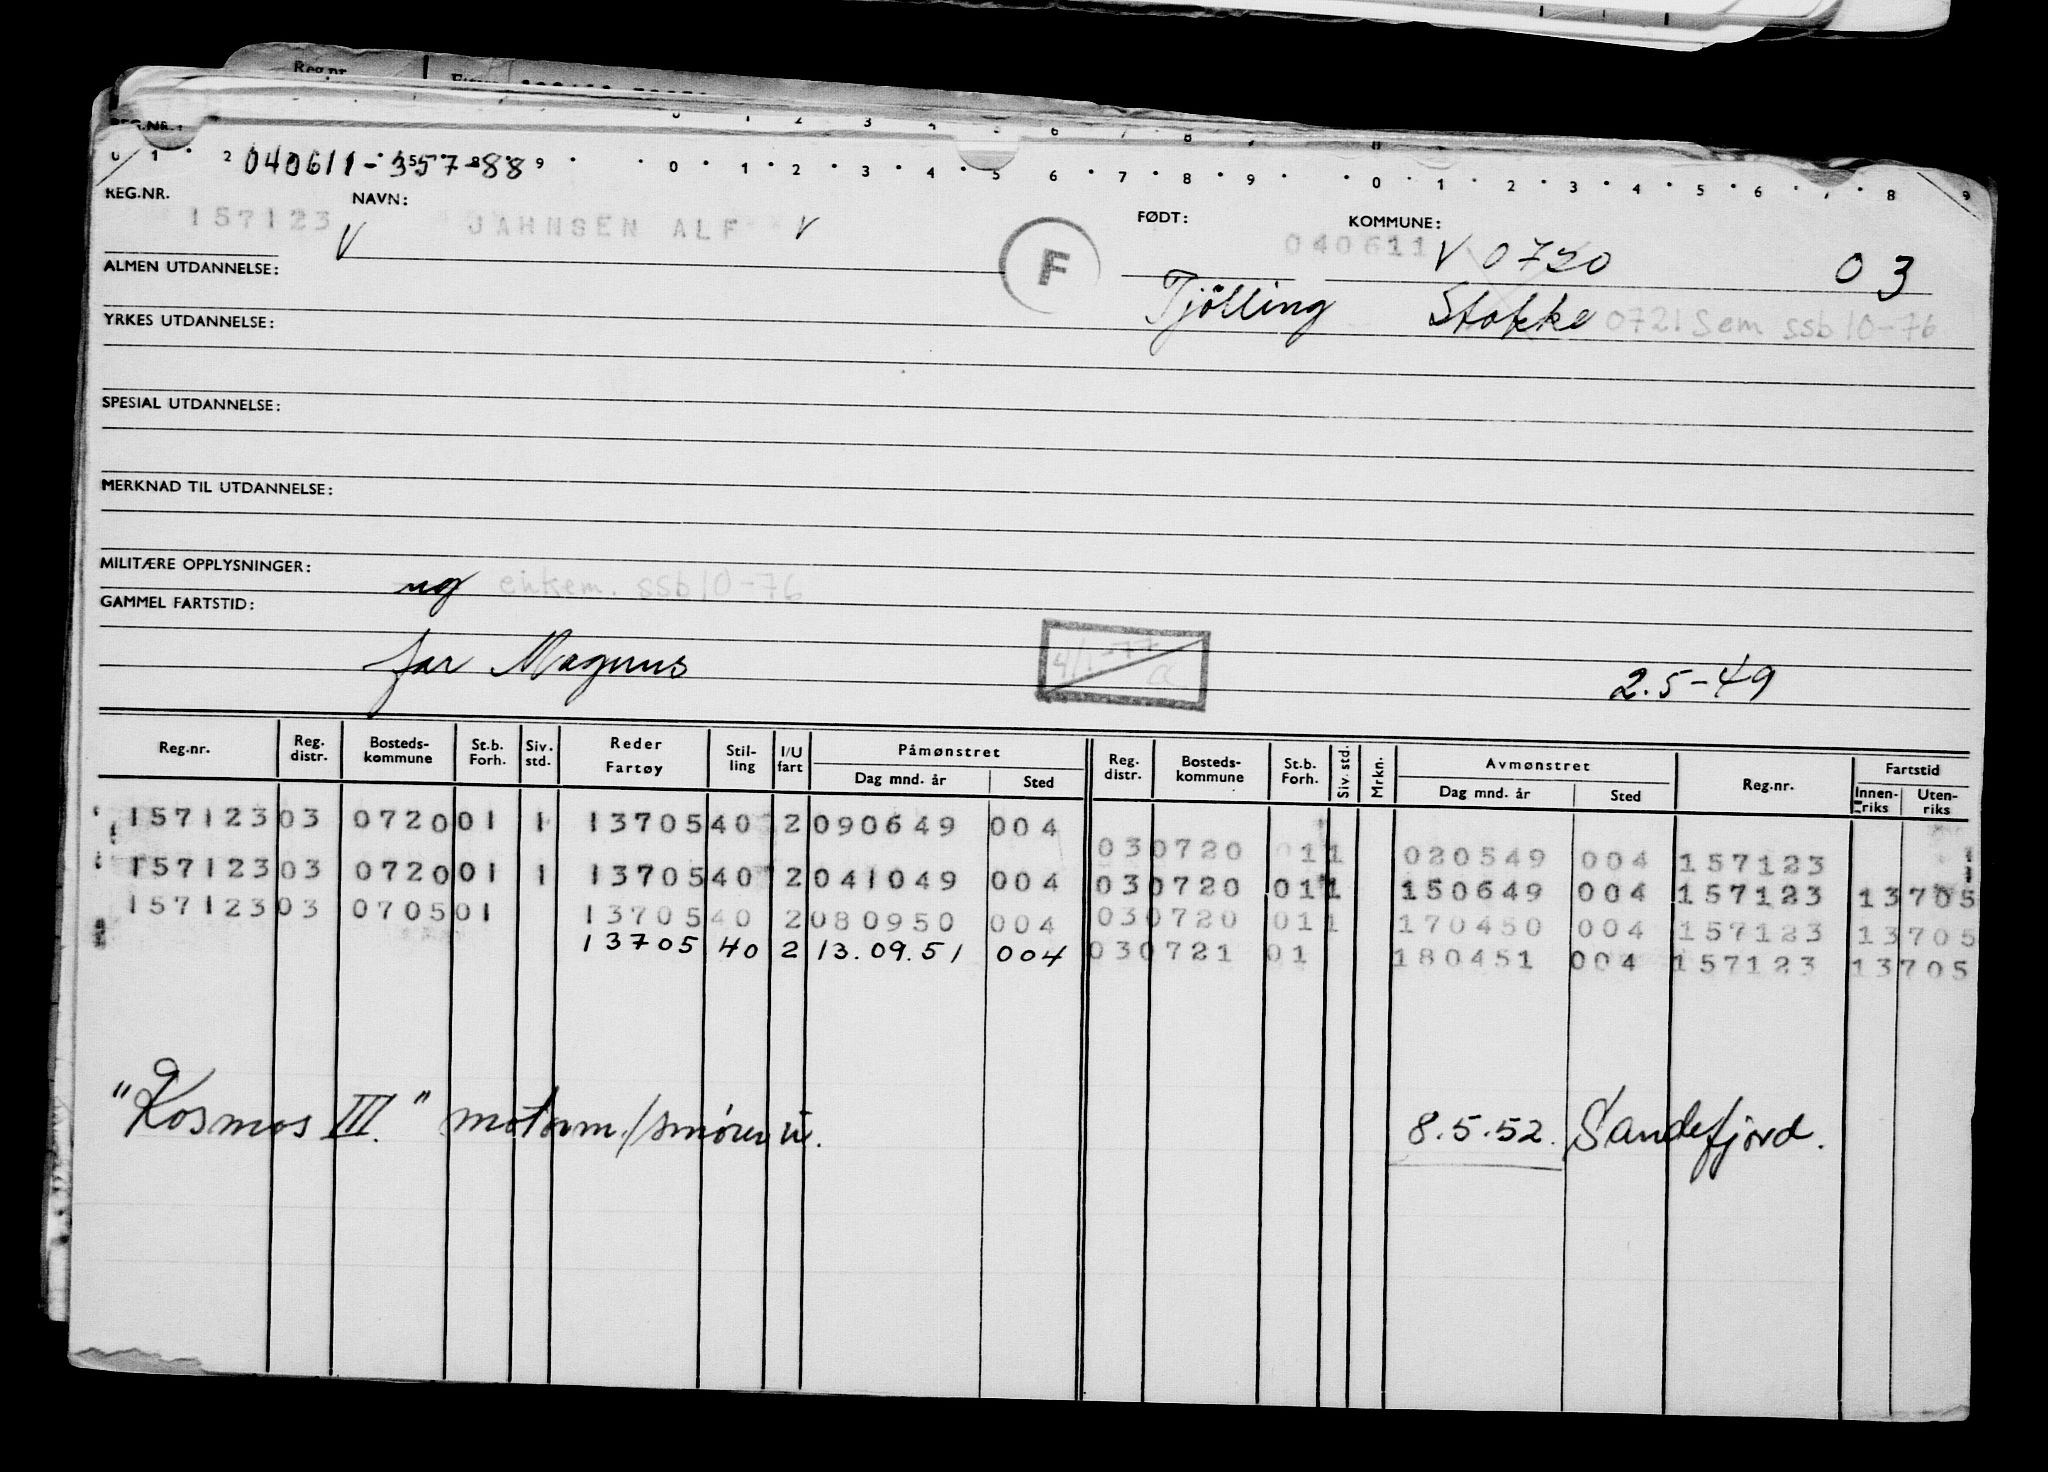 Reg.nr.
REG.NR.
0 1 2 9 0 1 2 3 4 5 6 7 8 9 0 1 2 3 4 5 6 7 8 9
040611-357-88
REG.NR. NAVN: FØDT: KOMMUNE:
157123 V JAHNSEN ALF V F 040611 V 0720 03
ALMEN UTDANNELSE:
Tjölling Stokke 0721 Sem ssb 10-76
YRKES UTDANNELSE:
SPESIAL UTDANNELSE:
MERKNAD TIL UTDANNELSE:
MILITÆRE OPPLYSNINGER:
ug enkem. ssb 10-76
GAMMEL FARTSTID:
far Magnus 4/1-77 a 2.5-49
Reg.nr. Reg. distr. Bosteds-kommune St.b. Forh. Siv. std. Reder Fartøy Stil-ling I/U fart Påmønstret Dag mnd. år Sted Reg. distr. Bosteds-kommune St.b. Forh. Siv. std. Mrkn. Avmønstret Dag mnd. år Sted Reg.nr. Fartstid Innen-riks Uten-riks
157123 03 0720 01 1 13705 40 2 090649 004
03 0720 01 1 020549 004 157123
157123 03 0720 01 1 13705 40 2 041049 004 03 0720 01 1 150649 004 157123 13705
157123 03 0705 01 13705 40 2 080950 004 03 0720 01 1 170450 004 157123 13705
13705 40 2 13.09.51 004 03 0721 01 180451 004 157123 13705
"Kosmos III." motorm./smører u. 8.5.52. Sandefjord.